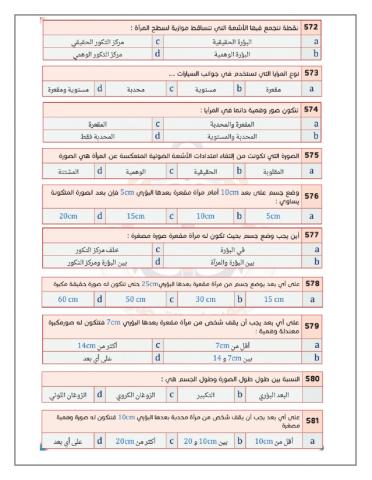 572 نقطة تتجمع فيها الأشعة التي تتساقط موازية لسطح المرآة :
a البؤرة الحقيقية c مركز التكور الحقيقي
b البؤرة الوهمية d مركز التكور الوهمي
573 نوع المرايا التي تستخدم في جوانب السيارات ...
a مقعرة b مستوية c محدبة d مستوية ومقعرة
574 تتكون صور وهمية دائما في المرايا :
a المقعرة والمحدبة c المقعرة
b المحدبة والمستوية d المحدبة فقط
575 الصورة التي تكونت من إلتقاء امتدادات الأشعة الضوئية المنعكسة عن المرآة هي الصورة
a المقلوبة b الحقيقية c الوهمية d المشتتة
576 وضع جسم على بعد 10cm أمام مرآة مقعرة بعدها البؤري 5cm فإن بعد الصورة المتكونة
يساوي :
a 5cm b 10cm c 15cm d 20cm
577 أين يجب وضع جسم بحيث تكون له مرآة مقعرة صورة مصغرة :
a في البؤرة c خلف مركز التكور
b بين البؤرة والمرآة d بين البؤرة ومركز التكور
578 على أي بعد يوضع جسم من مرآة مقعرة بعدها البؤري 25cm حتى تتكون له صورة حقيقة مكبرة
a 15 cm b 30 cm c 50 cm d 60 cm
579 على أي بعد يجب أن يقف شخص من مرآة مقعرة بعدها البؤري 7cm فتتكون له صورمكبرة
معتدلة وهمية :
a أقل من 7cm c أكثر من 14cm
b بين 7 و 14 d على أي بعد
580 النسبة بين طول طول الصورة وطول الجسم هي :
a البعد البؤري b التكبير c الزوغان الكروي d الزوغان اللوني
581 على أي بعد يجب أن يقف شخص من مرآة محدبة بعدها البؤري 10cm فتتكون له صورة وهمية
مصغرة
a أقل من 10cm b بين 10cm و 20 c أكثر من 20cm d على أي بعد